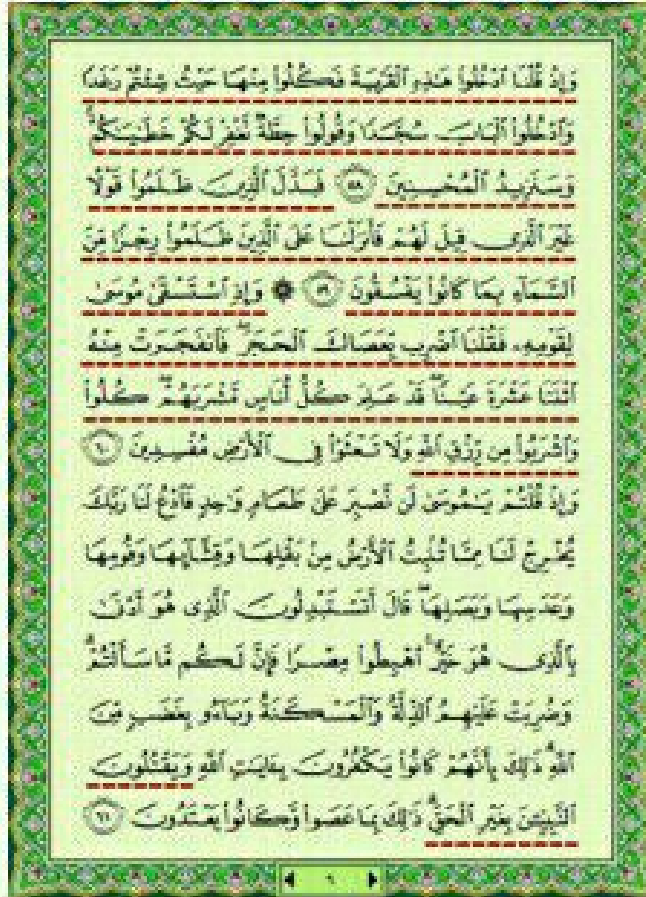 وَإِذْ قُلْنَا ٱدْخُلُوا۟ هَـٰذِهِ ٱلْقَرْيَةَ فَكُلُوا۟ مِنْهَا حَيْثُ شِئْتُمْ رَغَدًا
وَٱدْخُلُوا۟ ٱلْبَابَ سُجَّدًا وَقُولُوا۟ حِطَّةٌ نَّغْفِرْ لَكُمْ خَطَـٰيَـٰكُمْ ۚ
وَسَنَزِيدُ ٱلْمُحْسِنِينَ ٥٨ فَبَدَّلَ ٱلَّذِينَ ظَلَمُوا۟ قَوْلًا
غَيْرَ ٱلَّذِى قِيلَ لَهُمْ فَأَنزَلْنَا عَلَى ٱلَّذِينَ ظَلَمُوا۟ رِجْزًا مِّنَ
ٱلسَّمَآءِ بِمَا كَانُوا۟ يَفْسُقُونَ ٥٩ ۞ وَإِذِ ٱسْتَسْقَىٰ مُوسَىٰ
لِقَوْمِهِۦ فَقُلْنَا ٱضْرِب بِّعَصَاكَ ٱلْحَجَرَ ۖ فَٱنفَجَرَتْ مِنْهُ
ٱثْنَتَا عَشْرَةَ عَيْنًا ۖ قَدْ عَلِمَ كُلُّ أُنَاسٍ مَّشْرَبَهُمْ ۖ كُلُوا۟
وَٱشْرَبُوا۟ مِن رِّزْقِ ٱللَّهِ وَلَا تَعْثَوْا۟ فِى ٱلْأَرْضِ مُفْسِدِينَ ٦٠
وَإِذْ قُلْتُمْ يَـٰمُوسَىٰ لَن نَّصْبِرَ عَلَىٰ طَعَامٍ وَٰحِدٍ فَٱدْعُ لَنَا رَبَّكَ
يُخْرِجْ لَنَا مِمَّا تُنۢبِتُ ٱلْأَرْضُ مِنۢ بَقْلِهَا وَقِثَّآئِهَا وَفُومِهَا
وَعَدَسِهَا وَبَصَلِهَا ۖ قَالَ أَتَسْتَبْدِلُونَ ٱلَّذِى هُوَ أَدْنَىٰ
بِٱلَّذِى هُوَ خَيْرٌ ۚ ٱهْبِطُوا۟ مِصْرًا فَإِنَّ لَكُم مَّا سَأَلْتُمْ ۗ
وَضُرِبَتْ عَلَيْهِمُ ٱلذِّلَّةُ وَٱلْمَسْكَنَةُ وَبَآءُو بِغَضَبٍ مِّنَ
ٱللَّهِ ۗ ذَٰلِكَ بِأَنَّهُمْ كَانُوا۟ يَكْفُرُونَ بِـَٔايَـٰتِ ٱللَّهِ وَيَقْتُلُونَ
ٱلنَّبِيِّـۧنَ بِغَيْرِ ٱلْحَقِّ ۗ ذَٰلِكَ بِمَا عَصَوا۟ وَّكَانُوا۟ يَعْتَدُونَ ٦١
٩